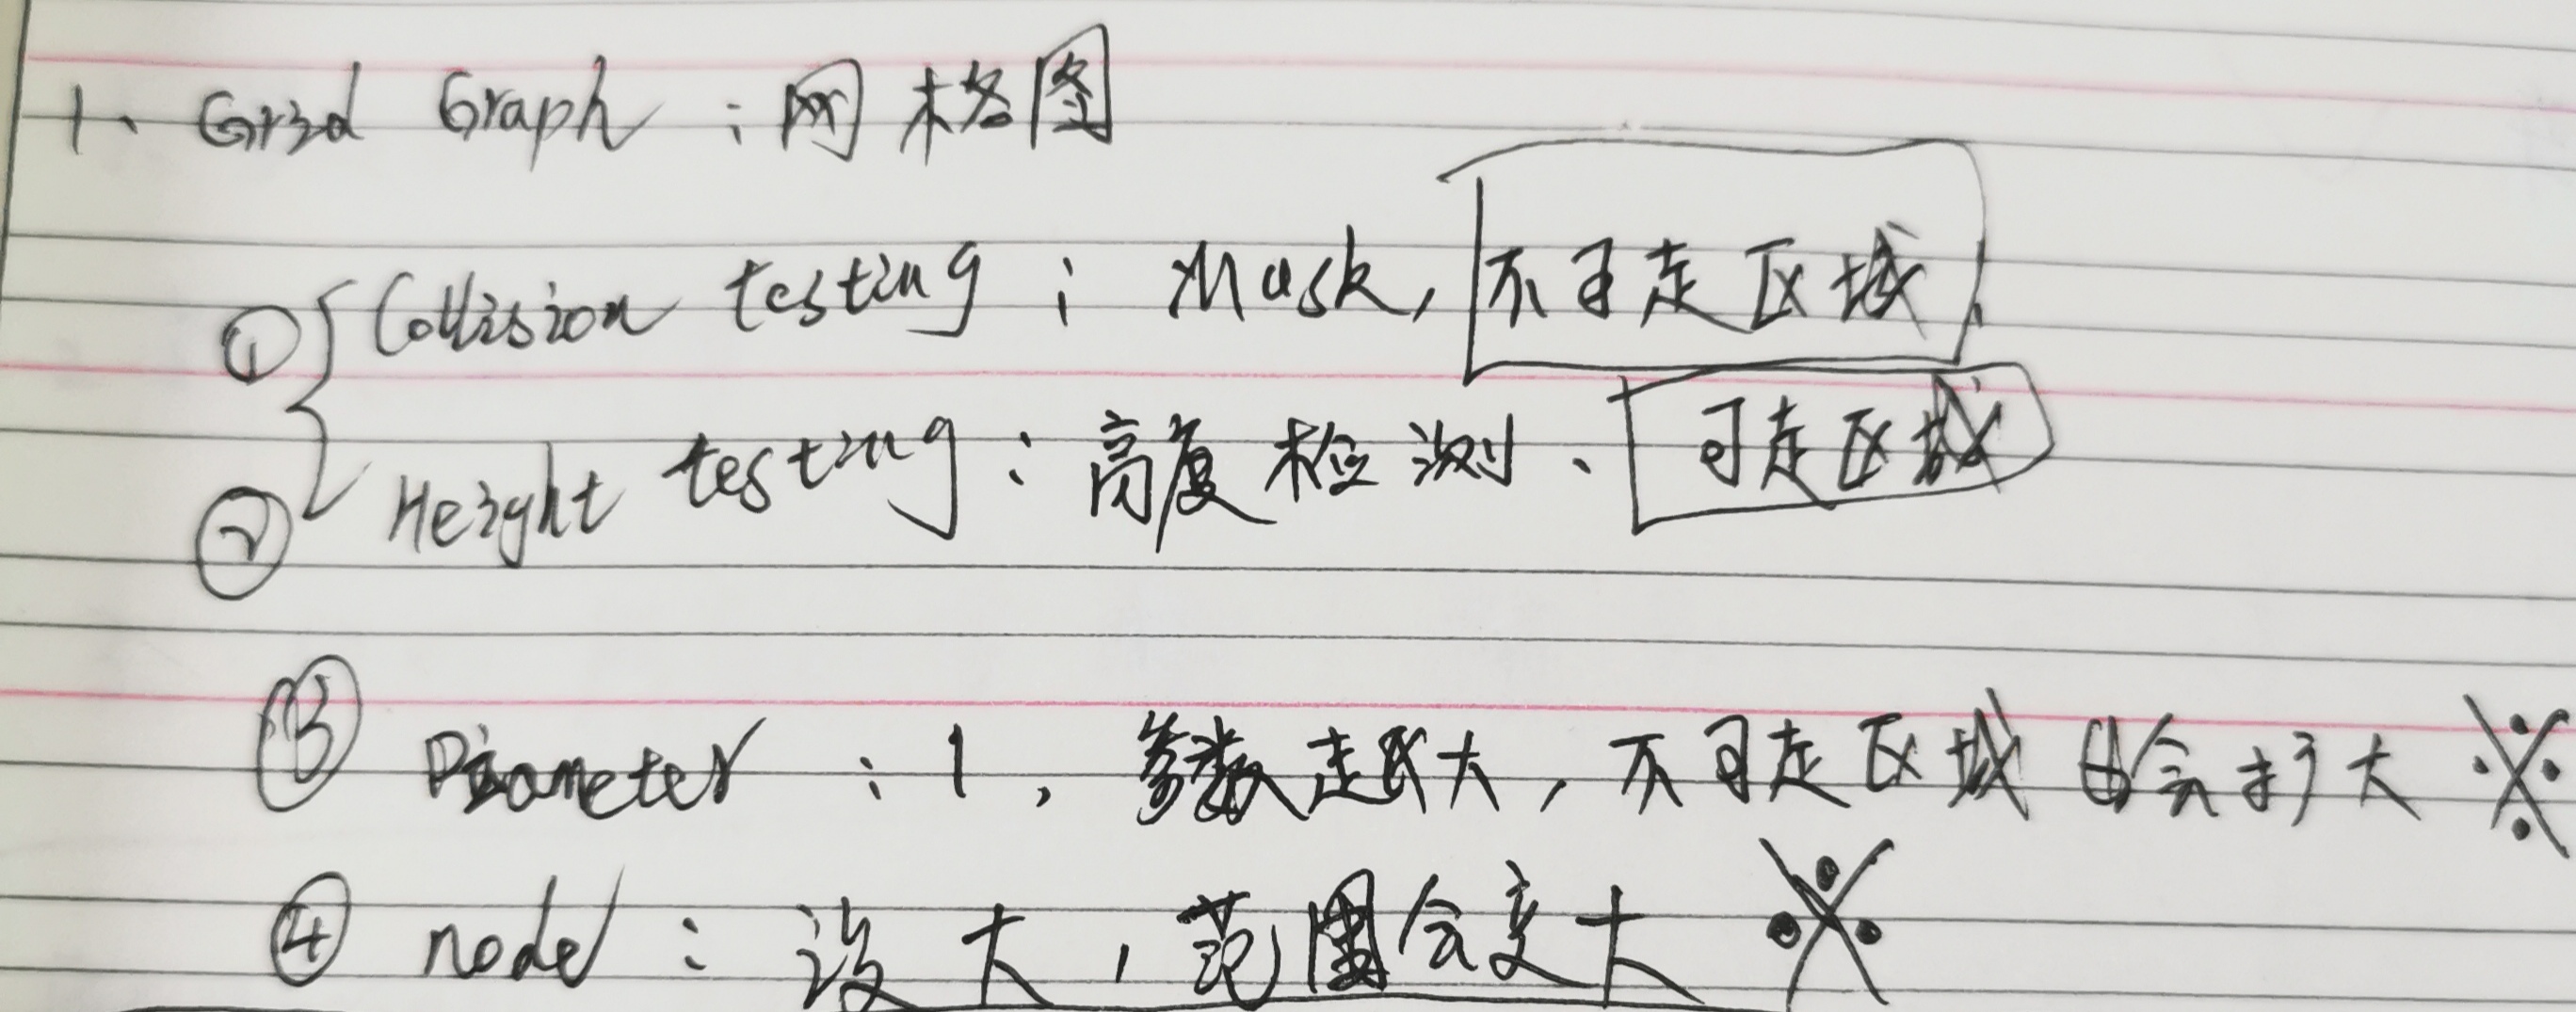 1、Grid Graph：网格图
① Collision testing：Mask，不可走区域
② Height testing：高度检测、可走区域
③ Diameter：1，参数越大，不可走区域也会扩大 ※
④ node：设大，范围会变大 ※